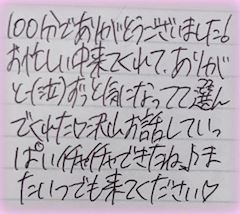 100分でありがとうございました!
お忙しい中来てくれて、ありが
と(泣)ずっと気になってて選ん
でくれた♡沢山お話していっ
ぱいイチャイチャできたね♪ま
たいつでも来てください♡